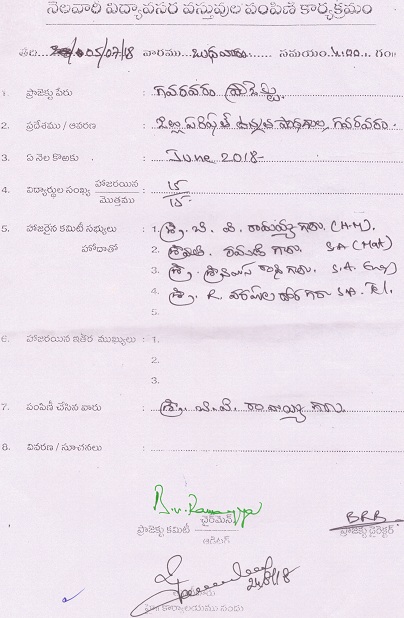 నెలవారి విద్యావసర వస్తువుల పంపిణీ కార్యక్రమం
తేది 05/07/18 వారము బుధవారం సమయం 4:00 గం
1. ప్రాజెక్టు పేరు : గవరవరం ప్రాజెక్టు.
2. ప్రదేశము / ఆవరణ : జిల్లా పరిషత్ ఉన్నత పాఠశాల, గవరవరం.
3. ఏ నెల కొఱకు : June 2018
4. విద్యార్థుల సంఖ్య హాజరయిన / మొత్తము : 15/15
5. హాజరైన కమిటీ సభ్యులు : 1. శ్రీ. బి. వి. రామయ్య గారు. (H.M).
హోదాతో 2. శ్రీమతి. గారు. S.A (Mat)
3. శ్రీ. గారు. S.A. Eng)
4. శ్రీ. R. గారు S.A. Tel.
5.
6. హాజరయిన ఇతర ముఖ్యులు : 1.
2.
3.
7. పంపిణీ చేసిన వారు : శ్రీ. బి.వి. రామయ్య గారు
8. వివరణ / సూచనలు :
B.V. Ramayya
ప్రాజెక్టు కమిటీ ఛైర్మెన్ / ఆడిటర్
BRB
ప్రాజెక్టు డైరెక్టర్
24/8/18
కార్యాలయము నందు